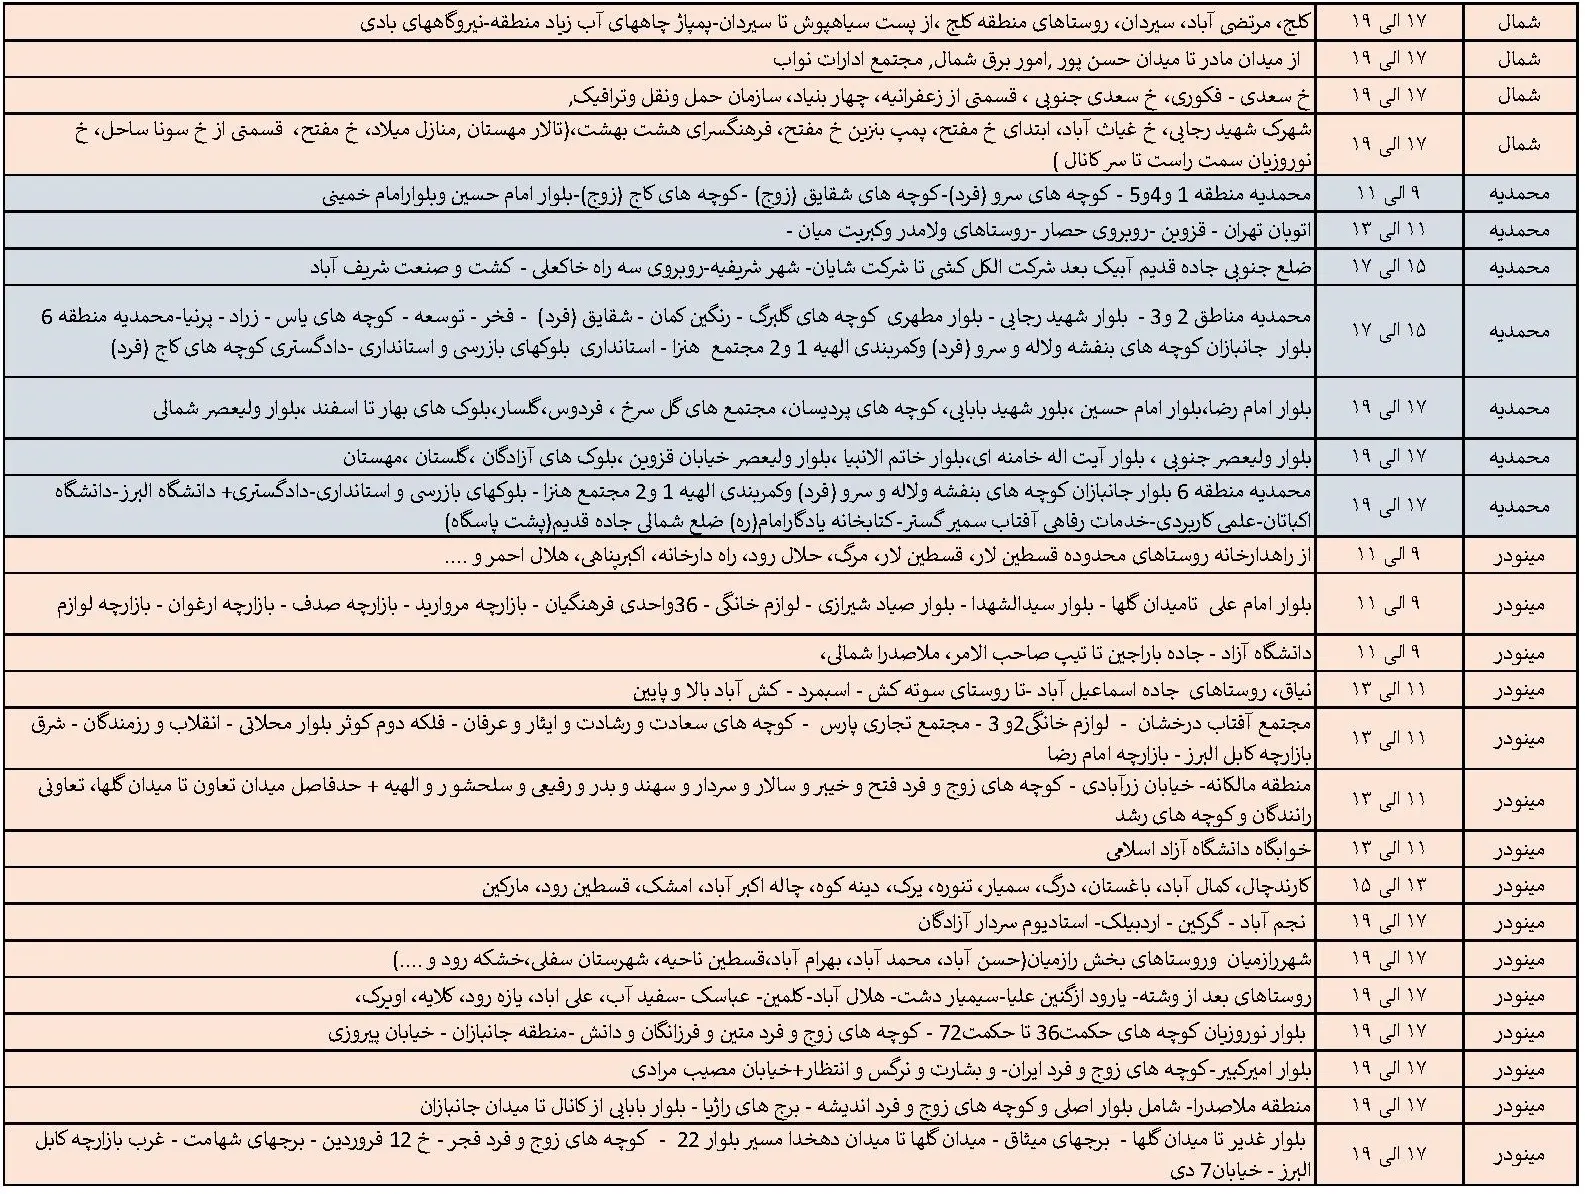 شمال ۱۷ الی ۱۹ کلج، مرتضی آباد، سیردان، روستاهای منطقه کلج ،از پست سیاهپوش تا سیردان-پمپاژ چاههای آب زیاد منطقه-نیروگاههای بادی
شمال ۱۷ الی ۱۹ از میدان مادر تا میدان حسن پور ,امور برق شمال, مجتمع ادارات نواب
شمال ۱۷ الی ۱۹ خ سعدی - فکوری، خ سعدی جنوبی ، قسمتی از زعفرانیه، چهار بنیاد، سازمان حمل ونقل وترافیک,
شمال ۱۷ الی ۱۹ شهرک شهید رجایی، خ غیاث آباد، ابتدای خ مفتح، پمپ بنزین خ مفتح، فرهنگسرای هشت بهشت،(تالار مهستان ,منازل میلاد، خ مفتح، قسمتی از خ سونا ساحل، خ
نوروزیان سمت راست تا سر کانال )
محمدیه ۹ الی ۱۱ محمدیه منطقه 1 و4و5 - کوچه های سرو (فرد)-کوچه های شقایق (زوج) -کوچه های کاج (زوج)-بلوار امام حسین وبلوارامام خمینی
محمدیه ۱۱ الی ۱۳ اتوبان تهران - قزوین -روبروی حصار -روستاهای ولامدر وکبریت میان -
محمدیه ۱۵ الی ۱۷ ضلع جنوبی جاده قدیم آبیک بعد شرکت الکل کشی تا شرکت شایان- شهر شریفیه-روبروی سه راه خاکعلی - کشت و صنعت شریف آباد
محمدیه ۱۵ الی ۱۷ محمدیه مناطق 2 و3 - بلوار شهید رجایی - بلوار مطهری کوچه های گلبرگ - رنگین کمان - شقایق (فرد) - فخر - توسعه - کوچه های یاس - زراد - پرنیا-محمدیه منطقه 6
بلوار جانبازان کوچه های بنفشه ولاله و سرو (فرد) وکمربندی الهیه 1 و2 مجتمع هنزا - استانداری بلوکهای بازرسی و استانداری -دادگستری کوچه های کاج (فرد)
محمدیه ۱۷ الی ۱۹ بلوار امام رضا،بلوار امام حسین ،بلور شهید بابایی، کوچه های پردیسان، مجتمع های گل سرخ ، فردوس،گلسار،بلوک های بهار تا اسفند ،بلوار ولیعصر شمالی
محمدیه ۱۷ الی ۱۹ بلوار ولیعصر جنوبی ، بلوار آیت اله خامنه ای،بلوار خاتم الانبیا ،بلوار ولیعصر خیابان قزوین ،بلوک های آزادگان ،گلستان ،مهستان
محمدیه ۱۷ الی ۱۹ محمدیه منطقه 6 بلوار جانبازان کوچه های بنفشه ولاله و سرو (فرد) وکمربندی الهیه 1 و2 مجتمع هنزا - بلوکهای بازرسی و استانداری-دادگستری+ دانشگاه البرز-دانشگاه
اکباتان-علمی کاربردی-خدمات رفاهی آفتاب سمیر گستر-کتابخانه یادگارامام(ره) ضلع شمالی جاده قدیم(پشت پاسگاه)
مینودر ۹ الی ۱۱ از راهدارخانه روستاهای محدوده قسطین لار، قسطین لار، مرگ، حلال رود، راه دارخانه، اکبرپناهی، هلال احمر و ....
مینودر ۹ الی ۱۱ بلوار امام علی تامیدان گلها - بلوار سیدالشهدا - بلوار صیاد شیرازی - لوازم خانگی - 36واحدی فرهنگیان - بازارچه مروارید - بازارچه صدف - بازارچه ارغوان - بازارچه لوازم
مینودر ۹ الی ۱۱ دانشگاه آزاد - جاده باراجین تا تیپ صاحب الامر، ملاصدرا شمالی،
مینودر ۱۱ الی ۱۳ نیاق، روستاهای جاده اسماعیل آباد -تا روستای سوته کش - اسبمرد - کش آباد بالا و پایین
مینودر ۱۱ الی ۱۳ مجتمع آفتاب درخشان - لوازم خانگی2و 3 - مجتمع تجاری پارس - کوچه های سعادت و رشادت و ایثار و عرفان - فلکه دوم کوثر بلوار محلاتی - انقلاب و رزمندگان - شرق
بازارچه کابل البرز - بازارچه امام رضا
مینودر ۱۱ الی ۱۳ منطقه مالکانه- خیابان زرآبادی - کوچه های زوج و فرد فتح و خیبر و سالار و سردار و سهند و بدر و رفیعی و سلحشور و الهیه + حدفاصل میدان تعاون تا میدان گلها، تعاونی
رانندگان و کوچه های رشد
مینودر ۱۱ الی ۱۳ خوابگاه دانشگاه آزاد اسلامی
مینودر ۱۳ الی ۱۵ کارندچال، کمال آباد، باغستان، درگ، سمیار، تنوره، یرک، دینه کوه، چاله اکبر آباد، امشک، قسطین رود، مارکین
مینودر ۱۷ الی ۱۹ نجم آباد - گرکین - اردبیلک- استادیوم سردار آزادگان
مینودر ۱۷ الی ۱۹ شهررازمیان وروستاهای بخش رازمیان(حسن آباد، محمد آباد، بهرام آباد،قسطین ناحیه، شهرستان سفلی،خشکه رود و ....)
مینودر ۱۷ الی ۱۹ روستاهای بعد از وشته- یارود ازگنین علیا-سیمیار دشت- هلال آباد-کلمین- عباسک -سفید آب، علی اباد، یازه رود، کلایه، اویرک،
مینودر ۱۷ الی ۱۹ بلوار نوروزیان کوچه های حکمت36 تا حکمت72 - کوچه های زوج و فرد متین و فرزانگان و دانش -منطقه جانبازان - خیابان پیروزی
مینودر ۱۷ الی ۱۹ بلوار امیرکبیر-کوچه های زوج و فرد ایران- و بشارت و نرگس و انتظار+خیابان مصیب مرادی
مینودر ۱۷ الی ۱۹ منطقه ملاصدرا- شامل بلوار اصلی و کوچه های زوج و فرد اندیشه - برج های رازیا - بلوار بابایی از کانال تا میدان جانبازان
مینودر ۱۷ الی ۱۹ بلوار غدیر تا میدان گلها - برجهای میثاق - میدان گلها تا میدان دهخدا مسیر بلوار 22 - کوچه های زوج و فرد فجر - خ 12 فروردین - برجهای شهامت - غرب بازارچه کابل
البرز - خیابان7 دی